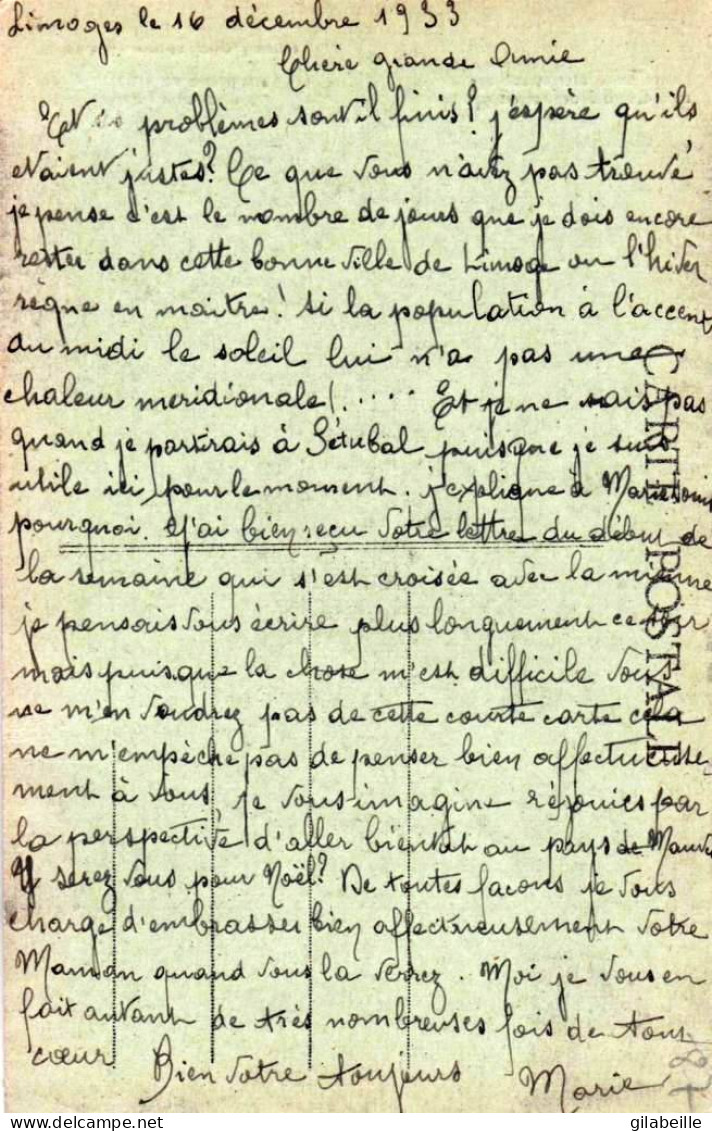 Limoges le 16 décembre 1933
Chère grande Amie
Et vos problèmes sont il finis? j'espère qu'ils
etaient justes? Ce que vous n'avez pas trouvé,
je pense c'est le nombre de jours que je dois encore
rester dans cette bonne ville de Limoge ou l'hiver
règne en maitre! si la population à l'accent
du midi le soleil lui n'a pas une
chaleur meridionale!..... Et je ne sais pas
quand je partirais à Sétubal puisque je suis
utile ici pour le moment. j'explique à
pourquoi. J'ai bien reçu votre lettre du début de
la semaine qui s'est croisée avec la mienne
je pensais vous écrire plus longuement ce soir
mais puisque la chose m'est difficile vous
ne m'en voudrez pas de cette courte carte cela
ne m'empèche pas de penser bien affectueuse-
ment à vous, je vous imagine réjouies par
la perspective d'aller bientot au pays de
Y serez vous pour Noël? De toutes façons je vous
charge d'embrasser bien affectueusement votre
Maman quand vous la verrez. Moi je vous en
fait autant de très nombreuses fois de tout
cœur Bien votre toujours Marie
CARTE POSTALE
gilabeille